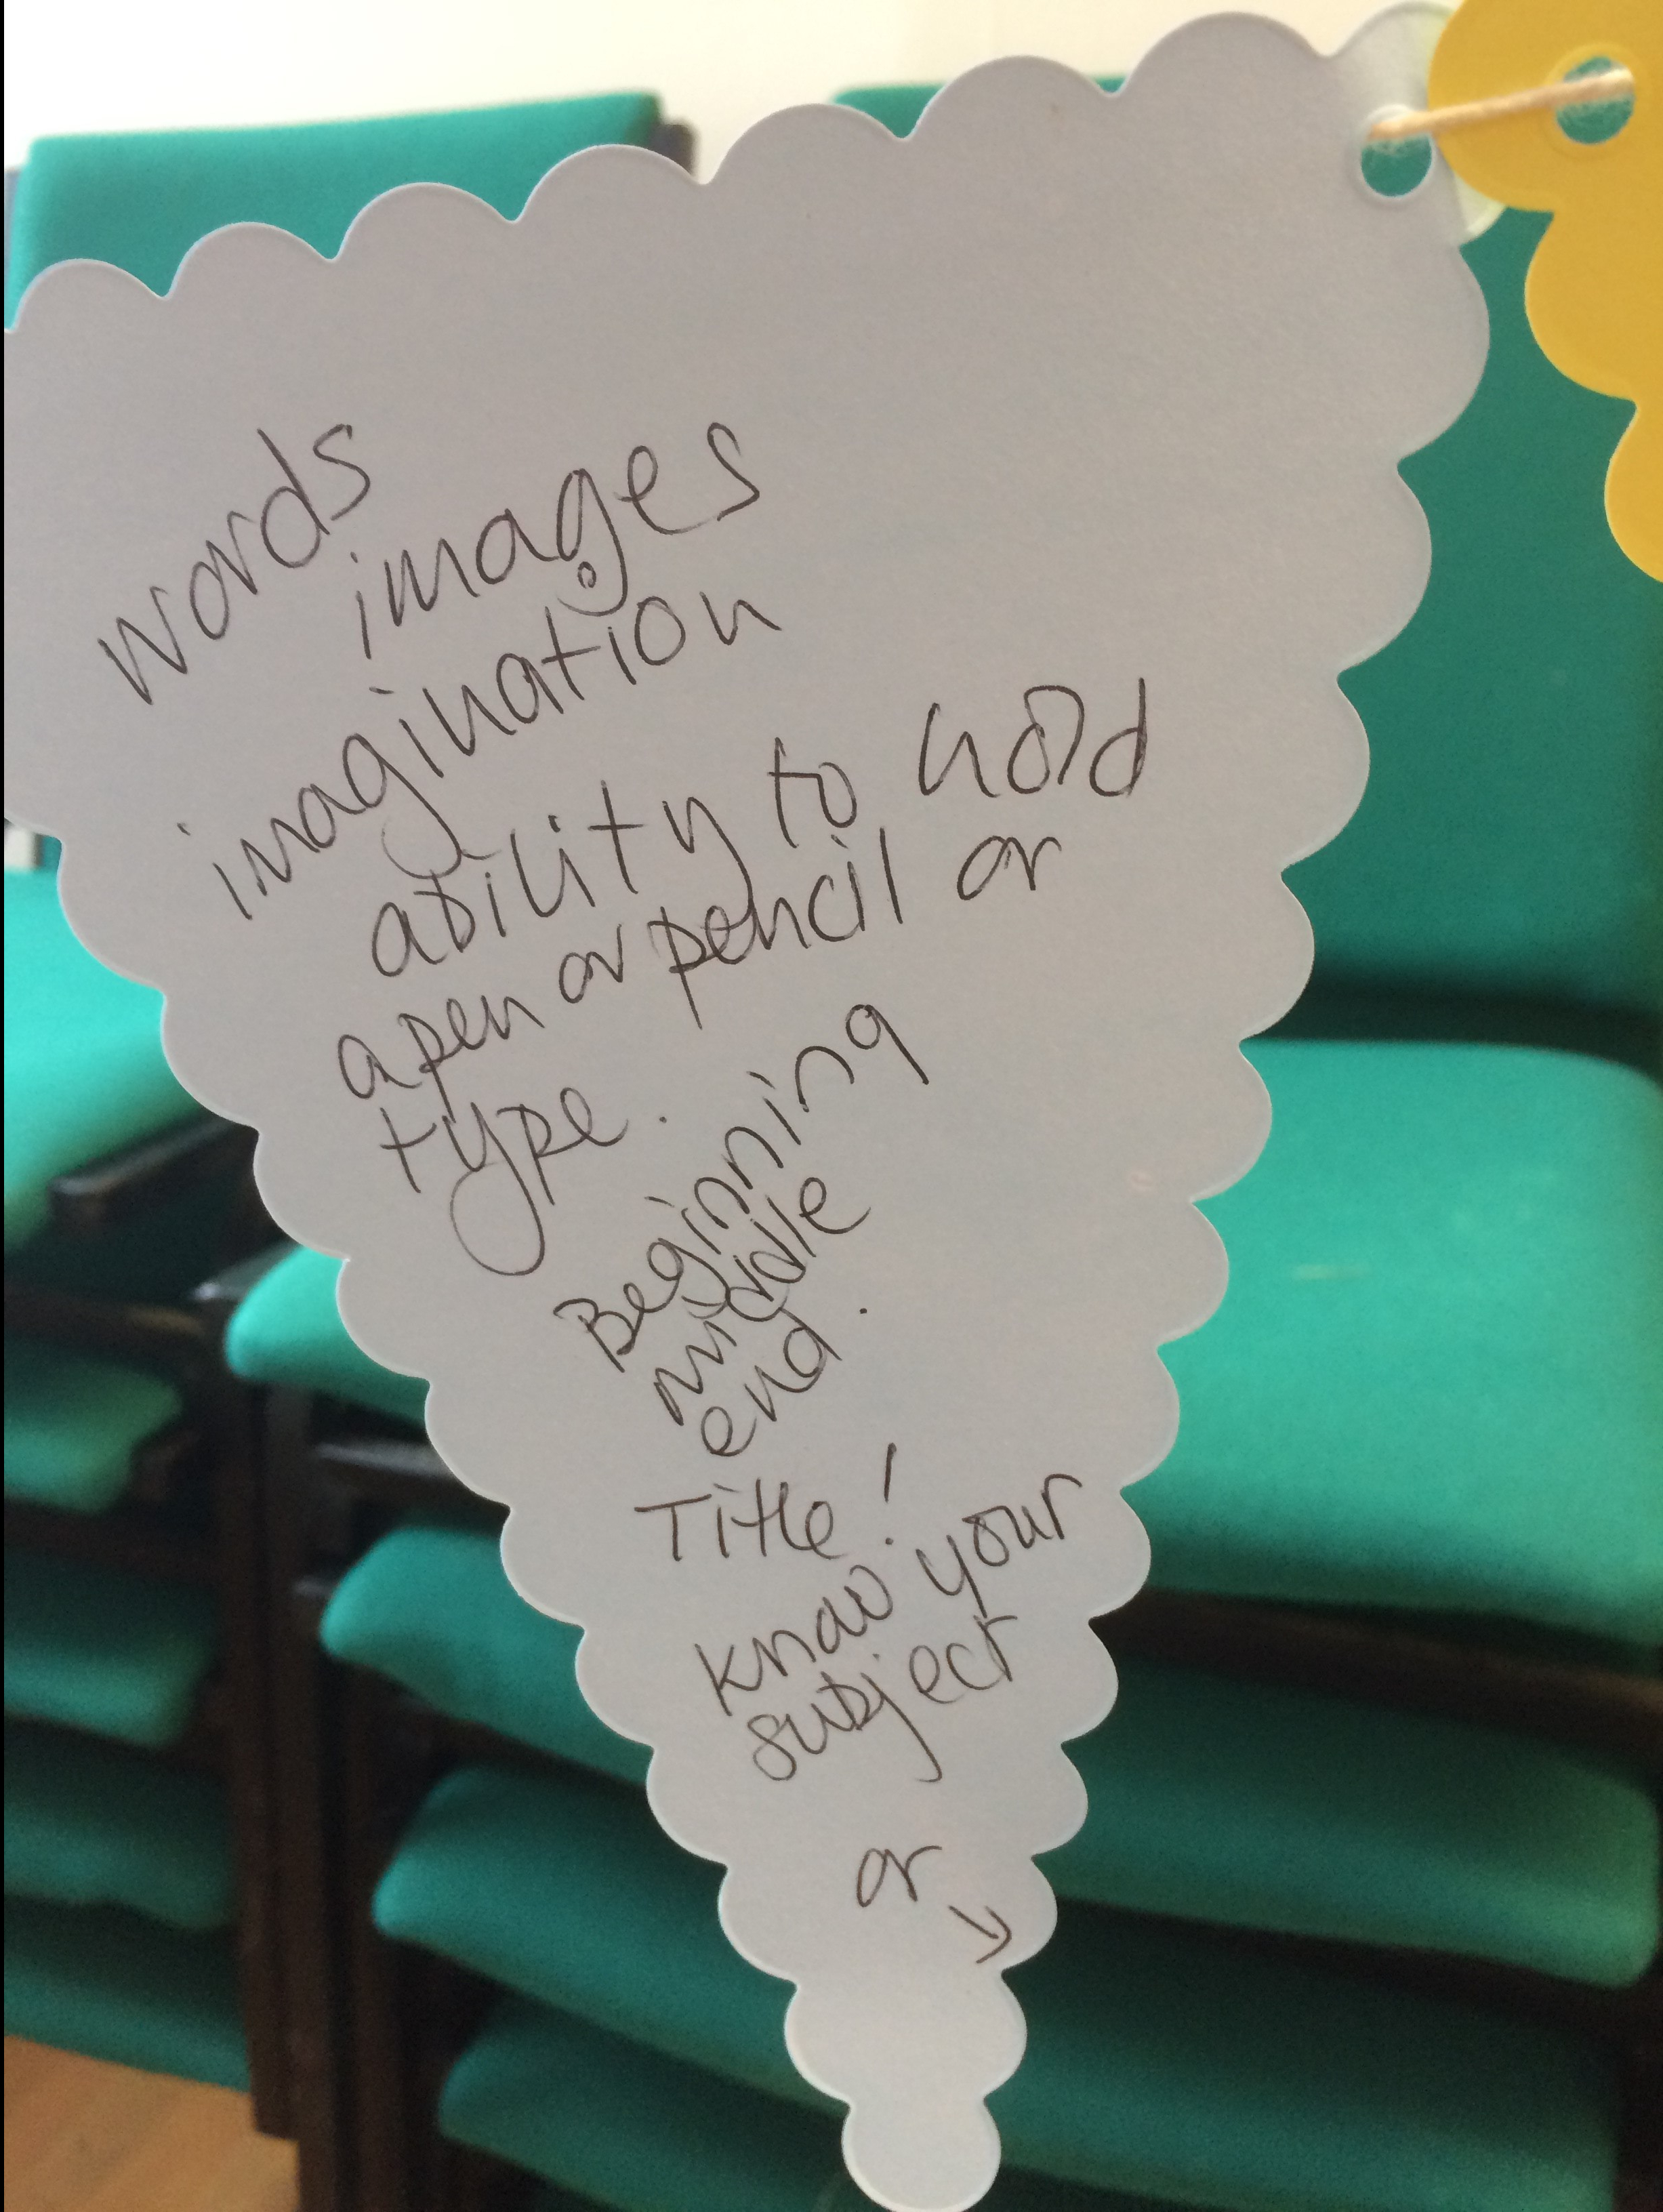 words
images
imagination
ability to hold
a pen or pencil or
type.
Beginning
middle
end.
Title!
know your
subject
or ↘